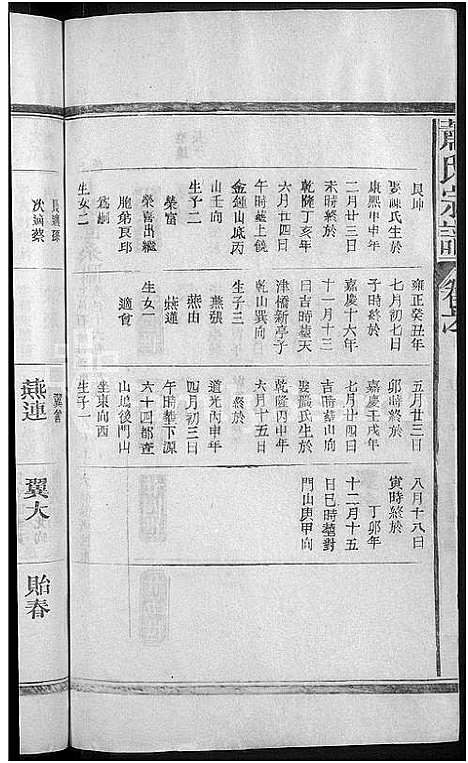 蕭氏宗譜
卷之
良坤
娶陳氏生於
康熙甲申年
二月廿三日
未時終於
乾隆丁亥年
六月廿四日
午時葬上饒
金鐘山底丙
山壬向
生子二
榮富
榮喜出繼
胞弟良邱
為嗣
生女二
長適孫
次適蔡
雍正癸丑年
七月初七日
子時終於
嘉慶十六年
十一月十三
日吉時墓天
津橋新亭子
乾山巽向
生子三
燕張
燕由
燕連
生女一
適曾
五月廿三日
卯時終於
嘉慶壬戌年
七月廿四日
吉時葬山向
娶龔氏生於
乾隆丙申年
六月十五日
終於
道光丙申年
四月初三日
午時葬下源
六十四都查
山塢後門山
坐東向西
生子一
翼
八月十八日
寅時終於
丁卯年
十二月十五
日巳時墓對
門山庚甲向
燕連
翼大
貽春